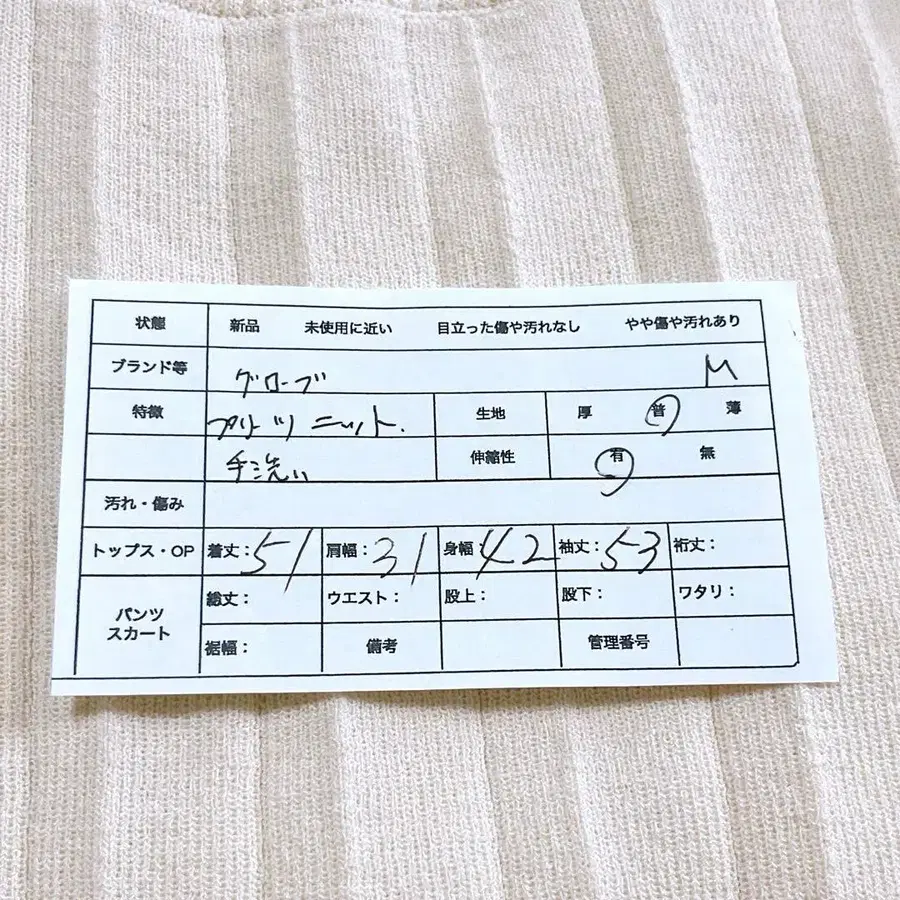 状態 新品 未使用に近い 目立った傷や汚れなし やや傷や汚れあり
ブランド等 グローブ M
特徴 プリーツ ニット. 生地 厚 普 薄
手洗い 伸縮性 有 無
汚れ・傷み
トップス・OP 着丈:51 肩幅:31 身幅 42 袖丈:53 裄丈:
パンツ スカート 総丈: ウエスト: 股上: 股下: ワタリ:
裾幅: 備考 管理番号